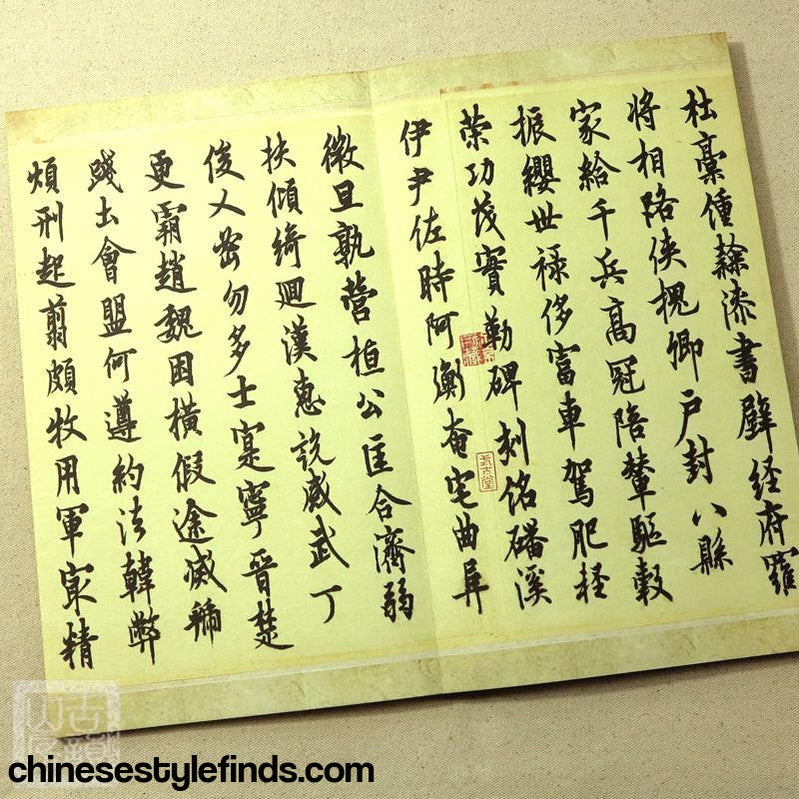 杜稾鍾隸漆書壁経府羅
將相路俠槐卿戶封八縣
家給千兵高冠陪輦驅轂
振纓世祿侈富車駕肥軽
策功茂實勒碑刻銘磻溪
伊尹佐時阿衡奄宅曲阜
微旦孰營桓公匡合濟弱
扶傾綺迴漢惠説感武丁
俊乂密勿多士寔寧晉楚
更霸趙魏困橫假途滅虢
踐土會盟何遵約法韓弊
煩刑起翦頗牧用軍冣精
chinesestylefinds.com